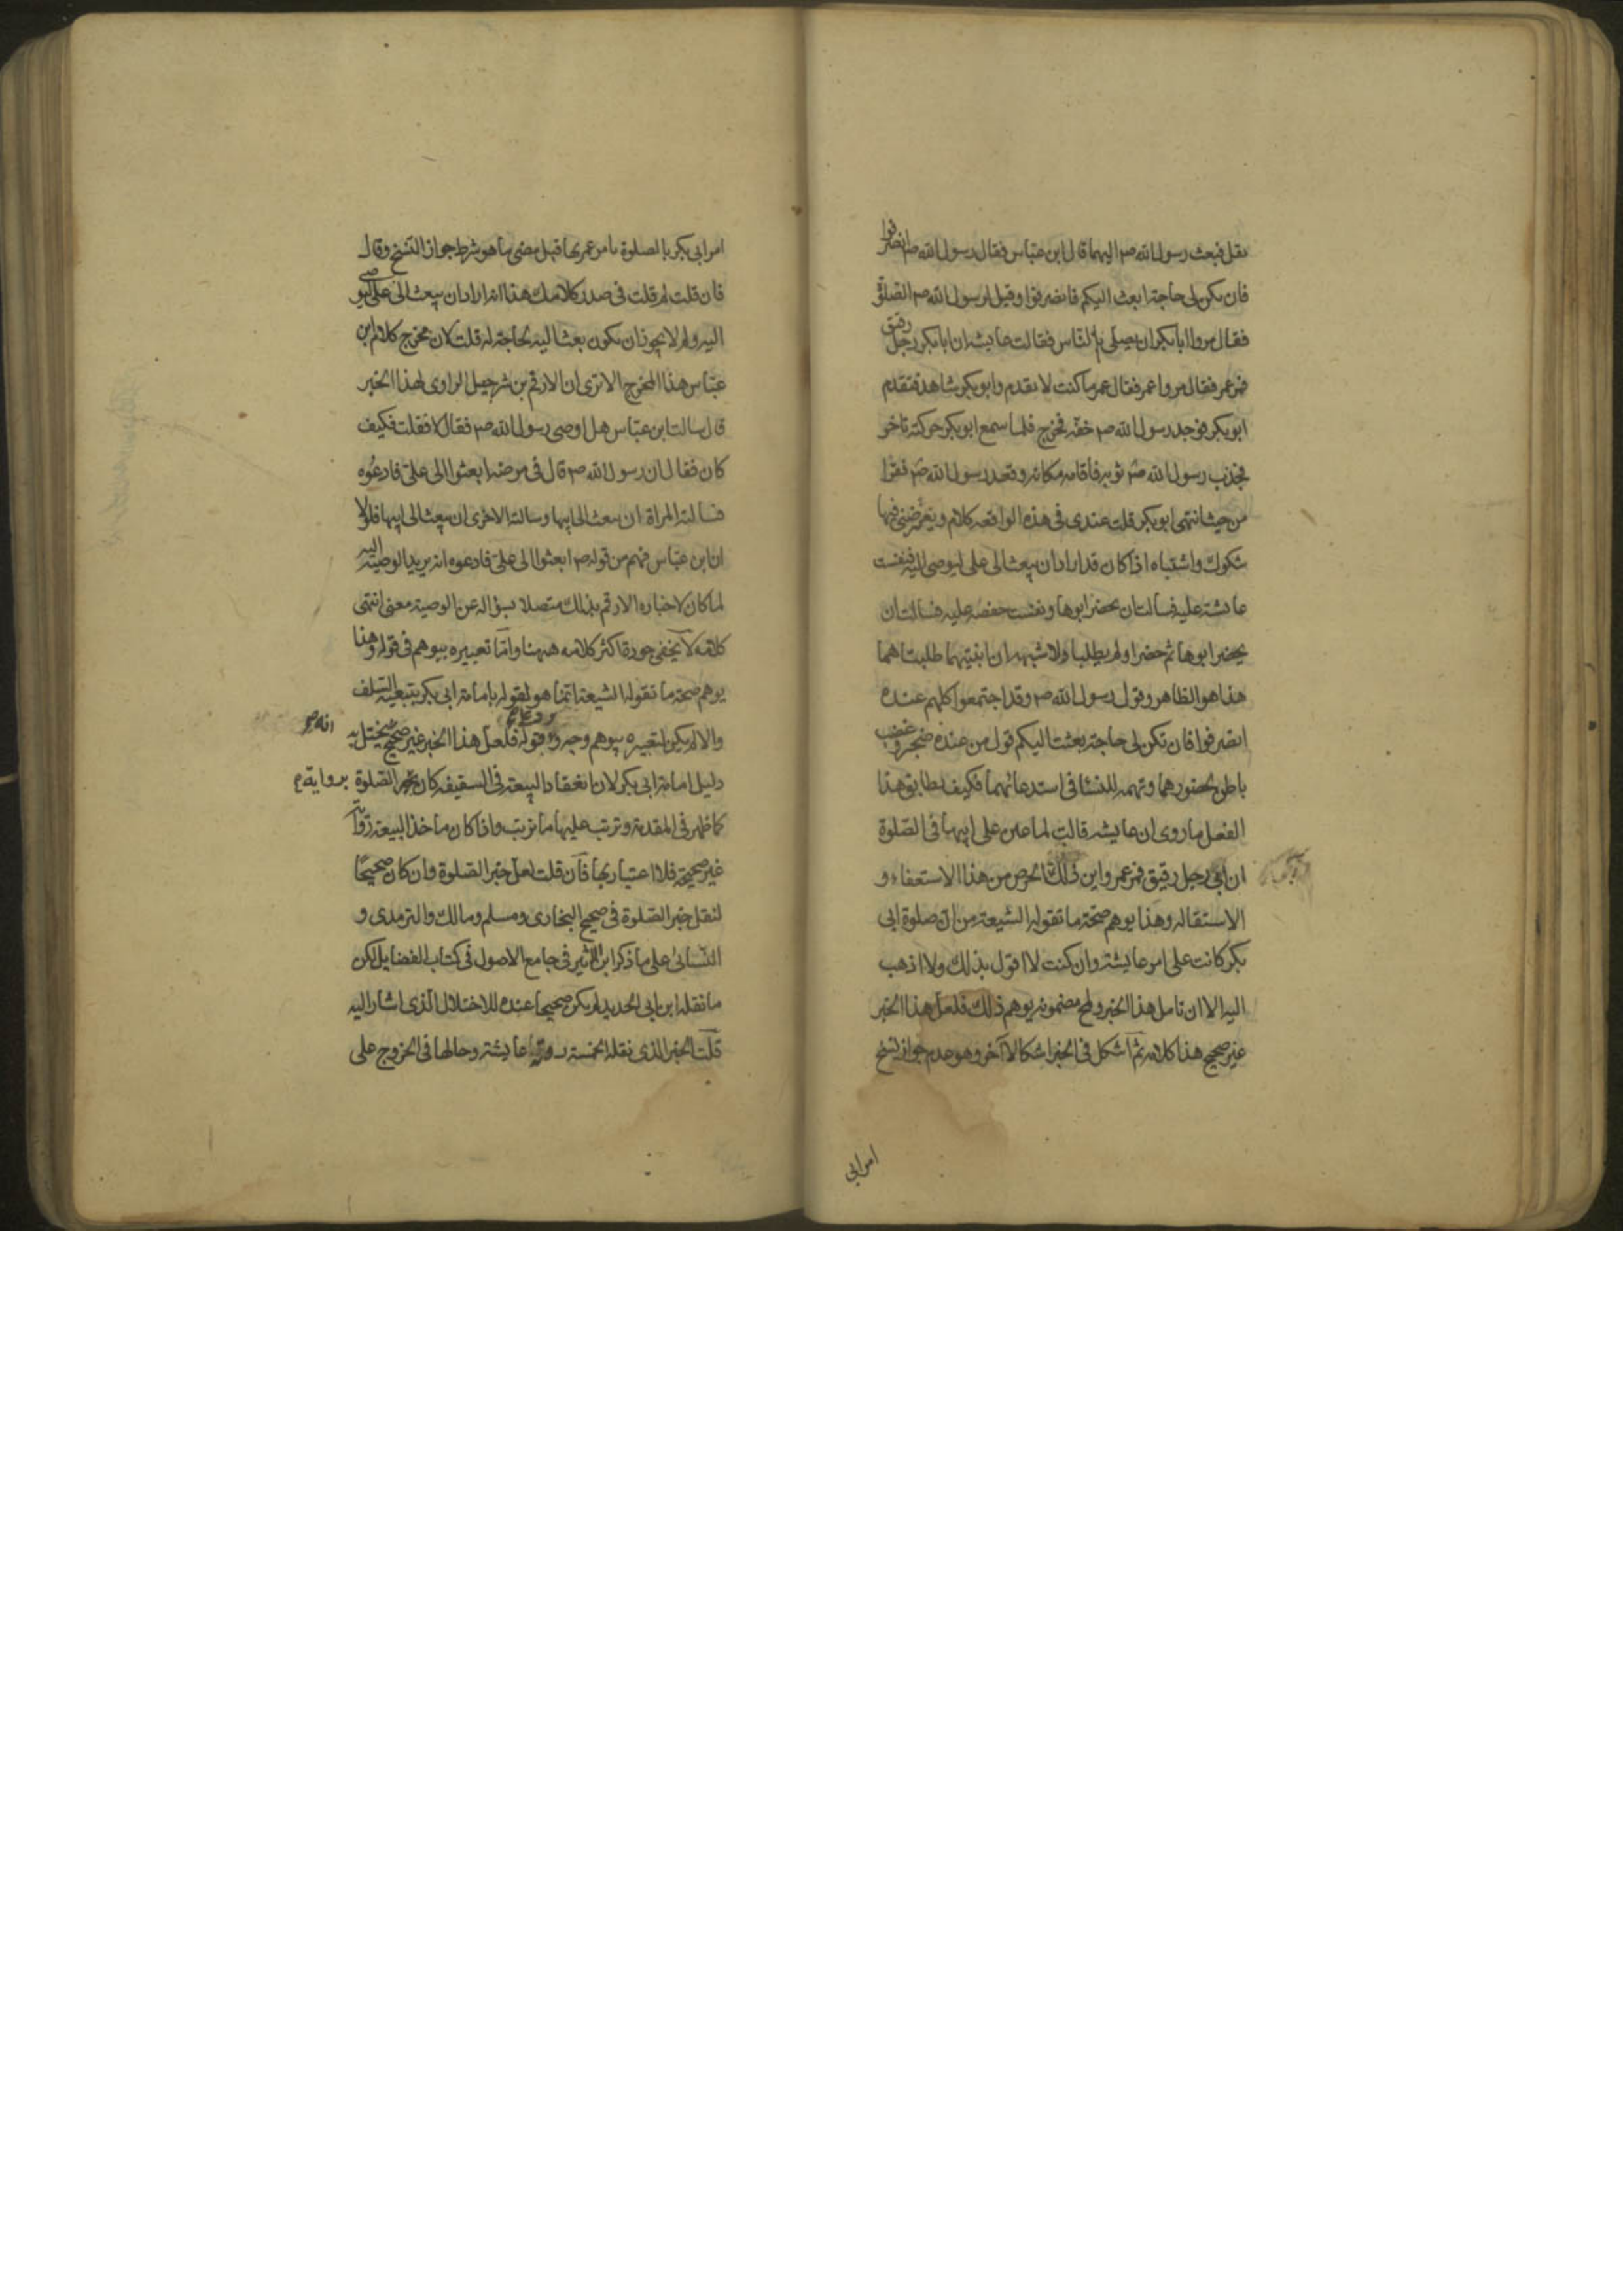 نقل فبعث رسول الله ص اليهما قال ابن عباس فقال رسول الله ص انصرفوا
فان تكن لى حاجة ابعث اليكم فانصرفوا وقيل لرسول الله ص الصلوة
فقال مروا ابابكر ان يصلى بالناس فقالت عايشه ان ابابكر رجل رقيق
فمر عمر فقال مروا عمر فقال عمر ما كنت لاتقدم وابو بكر شاهد فتقدم
ابو بكر فوجد رسول الله ص خفة فخرج فلما سمع ابو بكر حركته تاخر
فجذب رسول الله ص ثوبه فاقامه مكانه وقعد رسول الله ص فقرا
من حيث انتهى ابو بكر قلت عندى فى هذه الواقعه كلام ويعترضنى فيها
شكوك واشتباه اذا كان قد اراد ان يبعث الى على ليوصى اليه فنفست
عائشة عليه فسالت ان يحضر ابوها ونفست حفصه عليه فسالت ان
يحضر ابوها ثم حضرا ولم يطلبا فلا شبهه ان ابنتيهما طلبتاهما
هذا هو الظاهر وقول رسول الله ص وقد اجتمعوا كلهم عنده
انصرفوا فان تكن لى حاجة بعثت اليكم قول من عنده ضجر وغضب
باطن لحضورهما وتهمه للنسا فى استدعائهما فكيف يطابق هذا
الفعل ما روى ان عايشه قالت لما عين على ابيها فى الصلوة
ان ابى رجل رقيق فمر عمر واين ذلك الحرص من هذا الاستعفاء و
الاستقاله وهذا يوهم صحة ما تقوله الشيعة من ان صلوة ابى
بكر كانت عن امر عايشة وان كنت لا اقول بذلك ولا اذهب
اليه الا ان تامل هذا الخبر ولمح مضمونه يوهم ذلك فلعل هذا الخبر
غير صحيح هذا كلامه ثم اشكل فى الخبر اشكالا آخر وهو عدم جواز نسخ
امر ابى
امر ابى بكر بالصلوة بامر عمر بها قبل مضى ما هو شرط جواز النسخ وقال
فان قلت لم قلت فى صدر كلامك هذا انه اراد ان يبعث الى على ليوصى
اليه ولم لا يجوز ان يكون بعث اليه لحاجة له قلت لان مخرج كلام ابن
عباس هذا المخرج الا ترى ان الارقم بن شرحبيل الراوى لهذا الخبر
قال سالت ابن عباس هل اوصى رسول الله ص فقال لا فقلت فكيف
كان فقال ان رسول الله ص قال فى مرضه ابعثوا الى على فادعوه
فسالته المراة ان يبعث الى ابيها وسالته الاخرى ان يبعث الى ابيها فلولا
ان ابن عباس فهم من قوله ص ابعثوا الى على فادعوه انه يريد الوصية اليه
لما كان لاخبار الارقم بذلك متصلا بسؤاله عن الوصية معنى انتهى
كلامه لا يخفى جودة اكثر كلامه ههنا واما تعبيره بيوهم فى قوله وهذا
يوهم صحة ما تقوله الشيعة انما هو لقوله بامامة ابى بكر بتبعية السلف
والا لم يكن لتعبيره بيوهم وجه وقوله فلعل هذا الخبر غير صحيح يختل به
دليل امامة ابى بكر لان انعقاد البيعة فى السقيفه كان بخبر الصلوة برواية
كما ظهر فى المقدمة وترتب عليها ما ترتب واذا كان ماخذ البيعة رواية
غير صحيحة فلا اعتبار بها فان قلت لعل خبر الصلوة وان كان صحيحًا
لنقل خبر الصلوة فى صحيح البخارى ومسلم ومالك والترمدى و
النسائى على ما ذكر ابن الاثير فى جامع الاصول فى كتاب الفضايل لكن
ما نقله ابن ابى الحديد لم يكن صحيحا عنده للاختلال الذى اشار اليه
قلت الخبر الذى نقله الخمسة رواية عايشة وحالها فى الخروج على